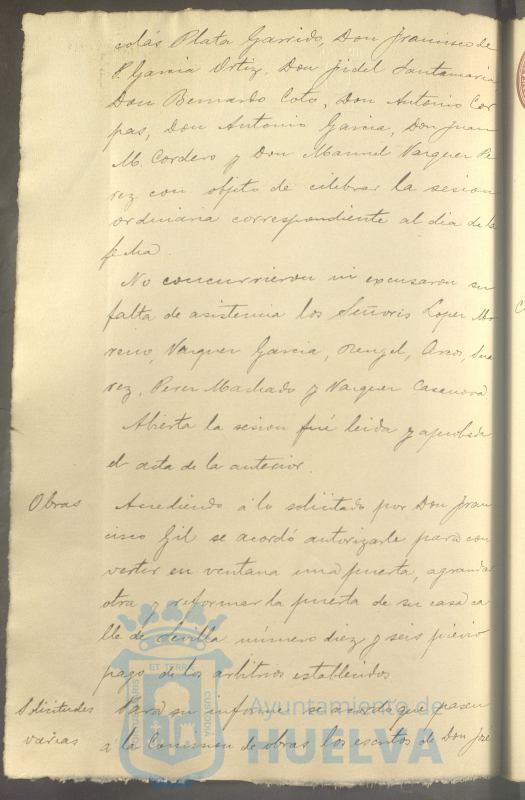 colás Plata Garrido, Don Francisco de
P. Garcia Ortiz, Don Fidel Santamaria
Don Bernardo Coto, Don Antonio Cor
pas, Don Antonio Garcia, Don Juan
M. Cordero y Don Manuel Vazquez Pe
rez con objeto de celebrar la sesion
ordinaria correspondiente al dia de la
fecha.
No concurrieron ni excusaron su
falta de asistencia los Señores Lopez Mo
reno, Vazquez Garcia, Rengel, Oros, Sua
rez, Perez Machado y Vazquez Casanova
Abierta la sesion fué leida y aprobada
el acta de la anterior.
Obras
Accediendo á lo solicitado por Don Fran
cisco Gil se acordó autorizarle para con
vertir en ventana una puerta, agrandar
otra y reformar la puerta de su casa ca
lle de Sevilla número diez y seis prévio
pago de los arbitrios establecidos
Solicitudes
varias
Para su informe se acordó que pasen
á la Comision de obras los escritos de Don José
Ayuntamiento de
HUELVA
ET TERRÆ
CUSTODIA